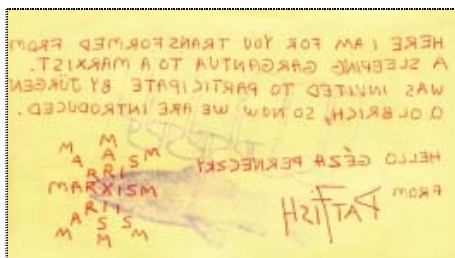 HERE I AM FOR YOU TRANSFORMED FROM
A SLEEPING GARGANTUA TO A MARXIST.
WAS INVITED TO PARTICIPATE BY JÜRGEN
O. OLBRICH, SO NOW WE ARE INTRODUCED.
HELLO GÉZA PERNECZKY
FROM PAT FISH
MARXISM